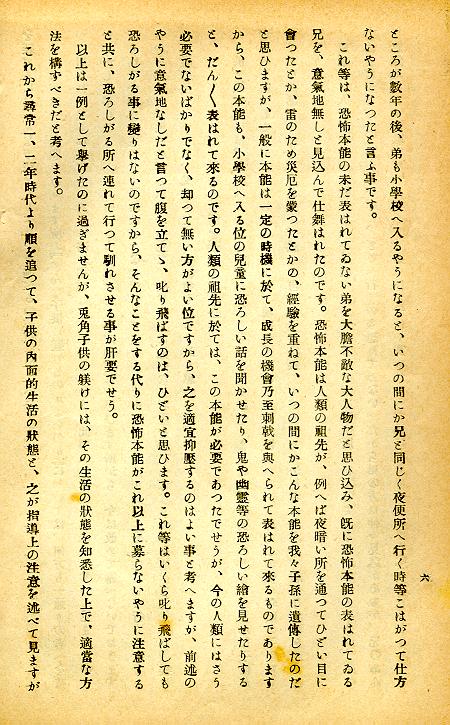 ところが數年の後、弟も小學校へ入るやうになると、いつの間にか兄と同じく夜便所へ行く時等こはがつて仕方
ないやうになつたと言ふ事です。
これ等は、恐怖本能の未だ表はれてゐない弟を大膽不敵な大人物だと思ひ込み、既に恐怖本能の表はれてゐる
兄を、意氣地無しと見込んで仕舞はれたのです。恐怖本能は人類の祖先が、例へば夜暗い所を通つてひどい目に
會つたとか、雷のため災厄を蒙つたとかの、經驗を重ねて、いつの間にかこんな本能を我々子孫に遺傳したのだ
と思ひますが、一般に本能は一定の時機に於て、成長の機會乃至刺戟を與へられて表はれて來るものであります
から、この本能も、小學校へ入る位の兒童に恐ろしい話を聞かせたり、鬼や幽靈等の恐ろしい繪を見せたりする
と、だん〱表はれて來るのです。人類の祖先に於ては、この本能が必要であつたでせうが、今の人類にはさう
必要でないばかりでなく、却つて無い方がよい位ですから、之を適宜抑壓するのはよい事と考へますが、前述の
やうに意氣地なしだと言つて腹を立てゝ、叱り飛ばすのは、ひどいと思ひます。これ等はいくら叱り飛ばしても
恐ろしがる事に變りはないのですから、そんなことをする代りに恐怖本能がこれ以上に募らないやうに注意する
と共に、恐ろしがる所へ連れて行つて馴れさせる事が肝要でせう。
以上は一例として擧げたのに過ぎませんが、兎角子供の躾けには、その生活の狀態を知悉した上で、適當な方
法を構すべきだと考へます。
これから尋常一、二年時代より順を追つて、子供の內面的生活の狀態と、之が指導上の注意を述べて見ますが
六